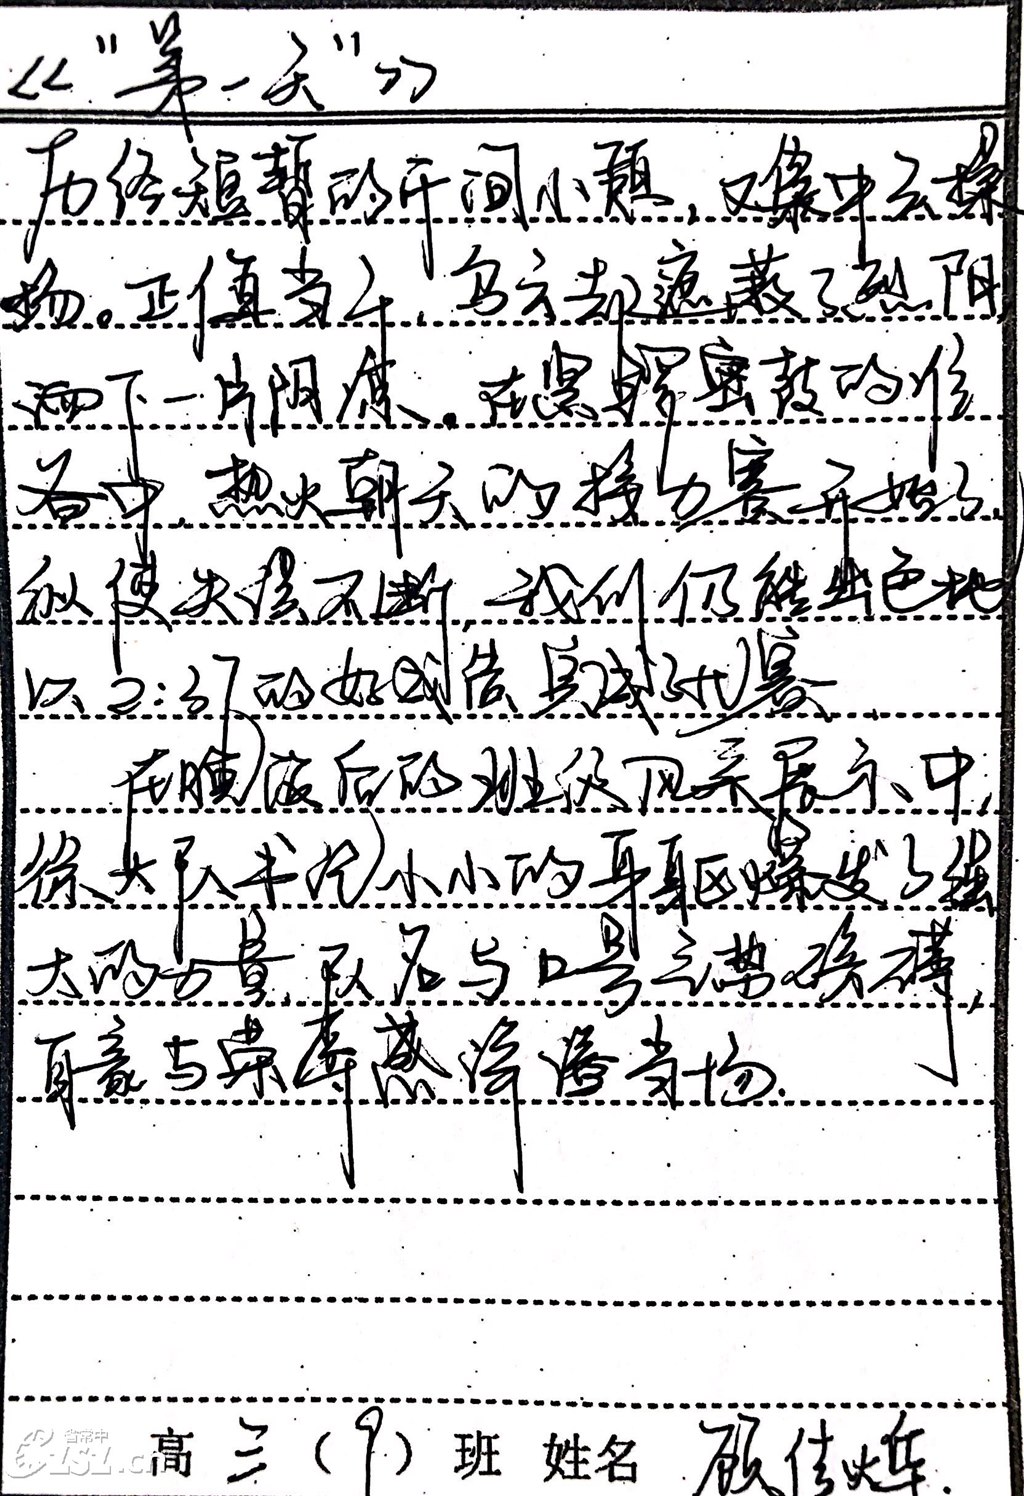 《“第一天”》
历经短暂的午间小憩,又集中去操
场。正值当午,乌云却遮蔽了烈阳,
洒下一片阴凉。在紧锣密鼓的准
备中,热火朝天的接力赛开始了,
纵使失误不断,我们仍能出色地
以2:37的好成绩完成了比赛
在晚饭后的班级风采展示中,
徐大队书记小小的身躯爆发了强
大的力量,队名与口号气势磅礴,
自豪与荣幸感洋溢当场.
高三(9)班 姓名 顾佳烨.
省常中
CSLZ.cn